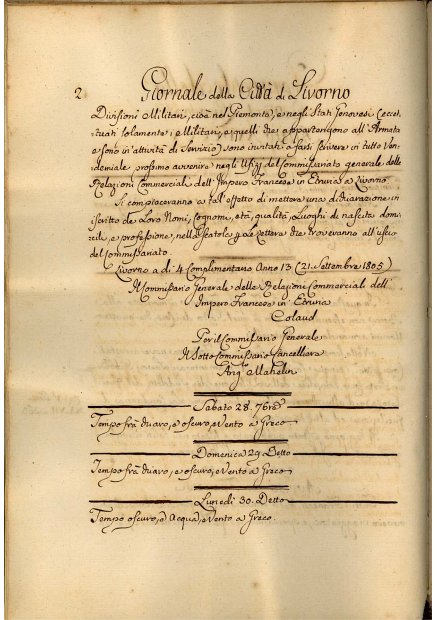 2 Giornale della Città di Livorno
Divisioni Militari, cioè nel Piemonte, e negli Stati Genovesi (eccet-
tuati solamente i Militari, e quelli che appartengono all'Armata
e sono in attività di Servizio) sono invitati a farsi scrivere in tutto Ven-
demiale prossimo avvenire negli Ufizj del Commissariato generale delle
Relazioni Commerciali dell'Impero Francese in Etruria a Livorno.
Si compiaceranno a tal'effetto di mettere una dichiarazione in
iscritto de Loro Nomi, Cognomi, età, qualità, Luoghi di nascita, domi-
cilj, e professione, nella Scatola p Le Lettere che troveranno all'ufizio
del Commissariato.
Livorno a dì 4 Complimentario Anno 13 (21. Settembre 1805)
Il Commissario Generale delle Relazioni Commerciali dell'
Impero Francese in Etruria
Colaud
Per il Commissario Generale
Il Sotto Commissario Cancelliere
Ang.o Mahelin
Sabato 28. 7bre
Tempo frà chiaro, e oscuro, e Vento a Greco
Domenica 29. Detto
Tempo frà chiaro, e oscuro, e Vento a Greco
Lunedì 30. Detto
Tempo oscuro, e Acqua, e Vento a Greco.